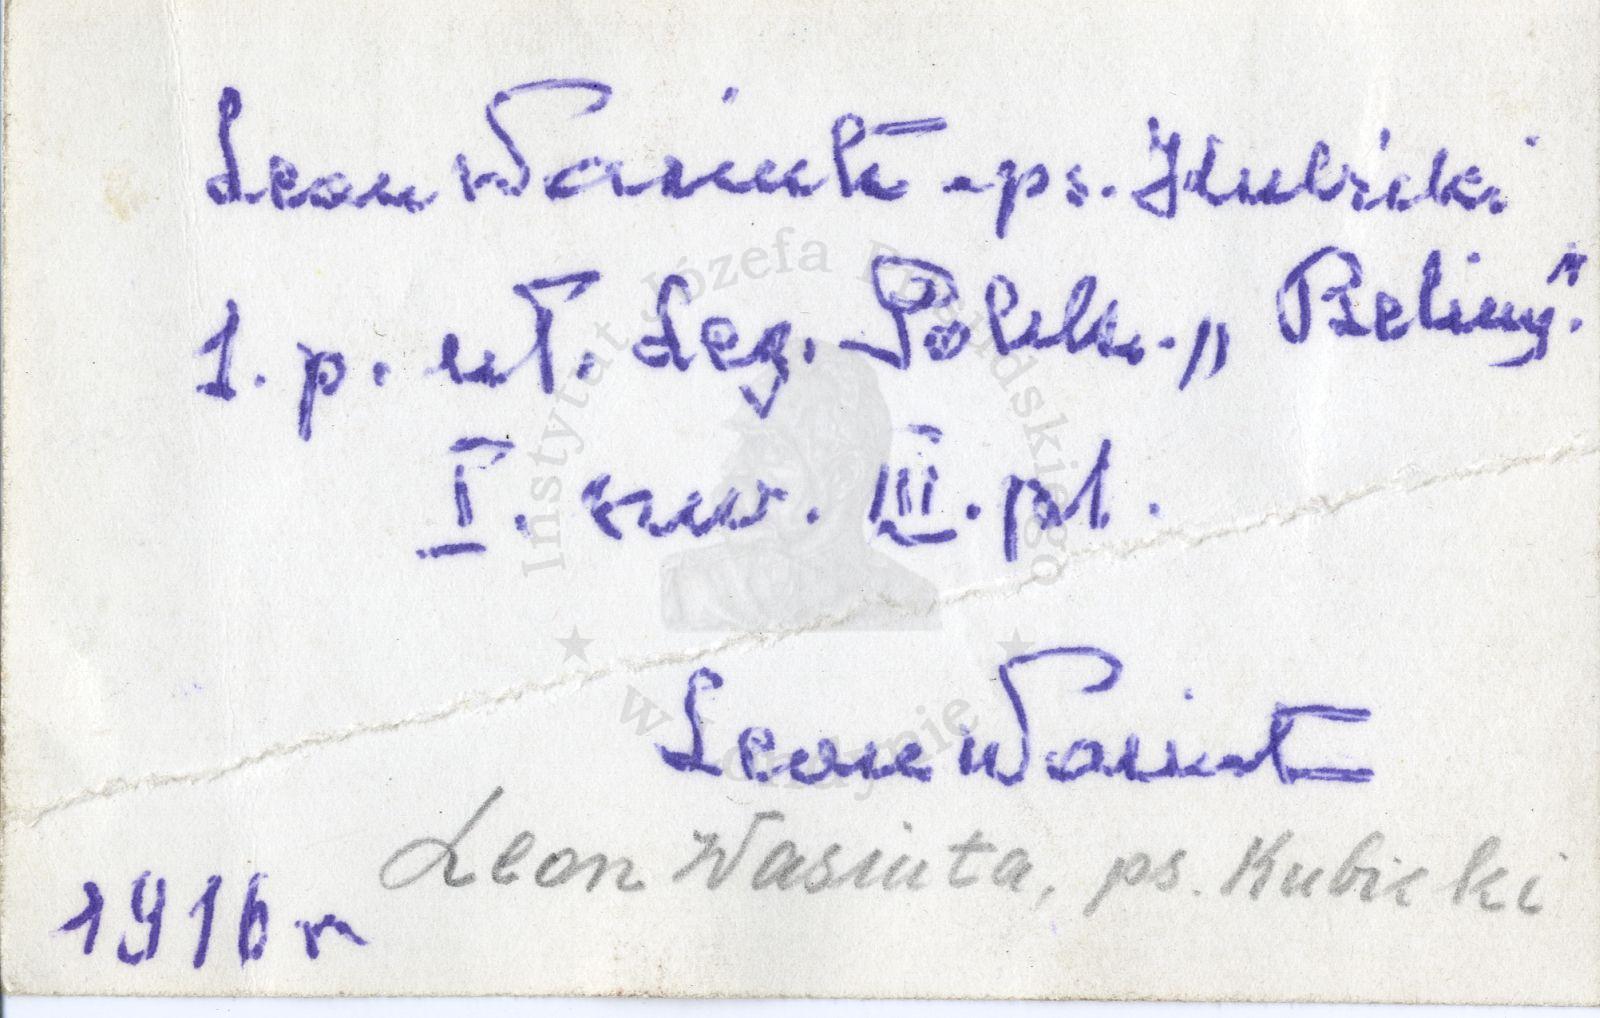 Leon Wasiuta - ps. Kubicki
1. p. uł. Leg. Polsk. „Beliny”.
I. szw. III. pl.
Leon Wasiuta
Leon Wasiuta, ps. Kubicki
1916 r
Instytut Józefa Piłsudskiego
w Londynie